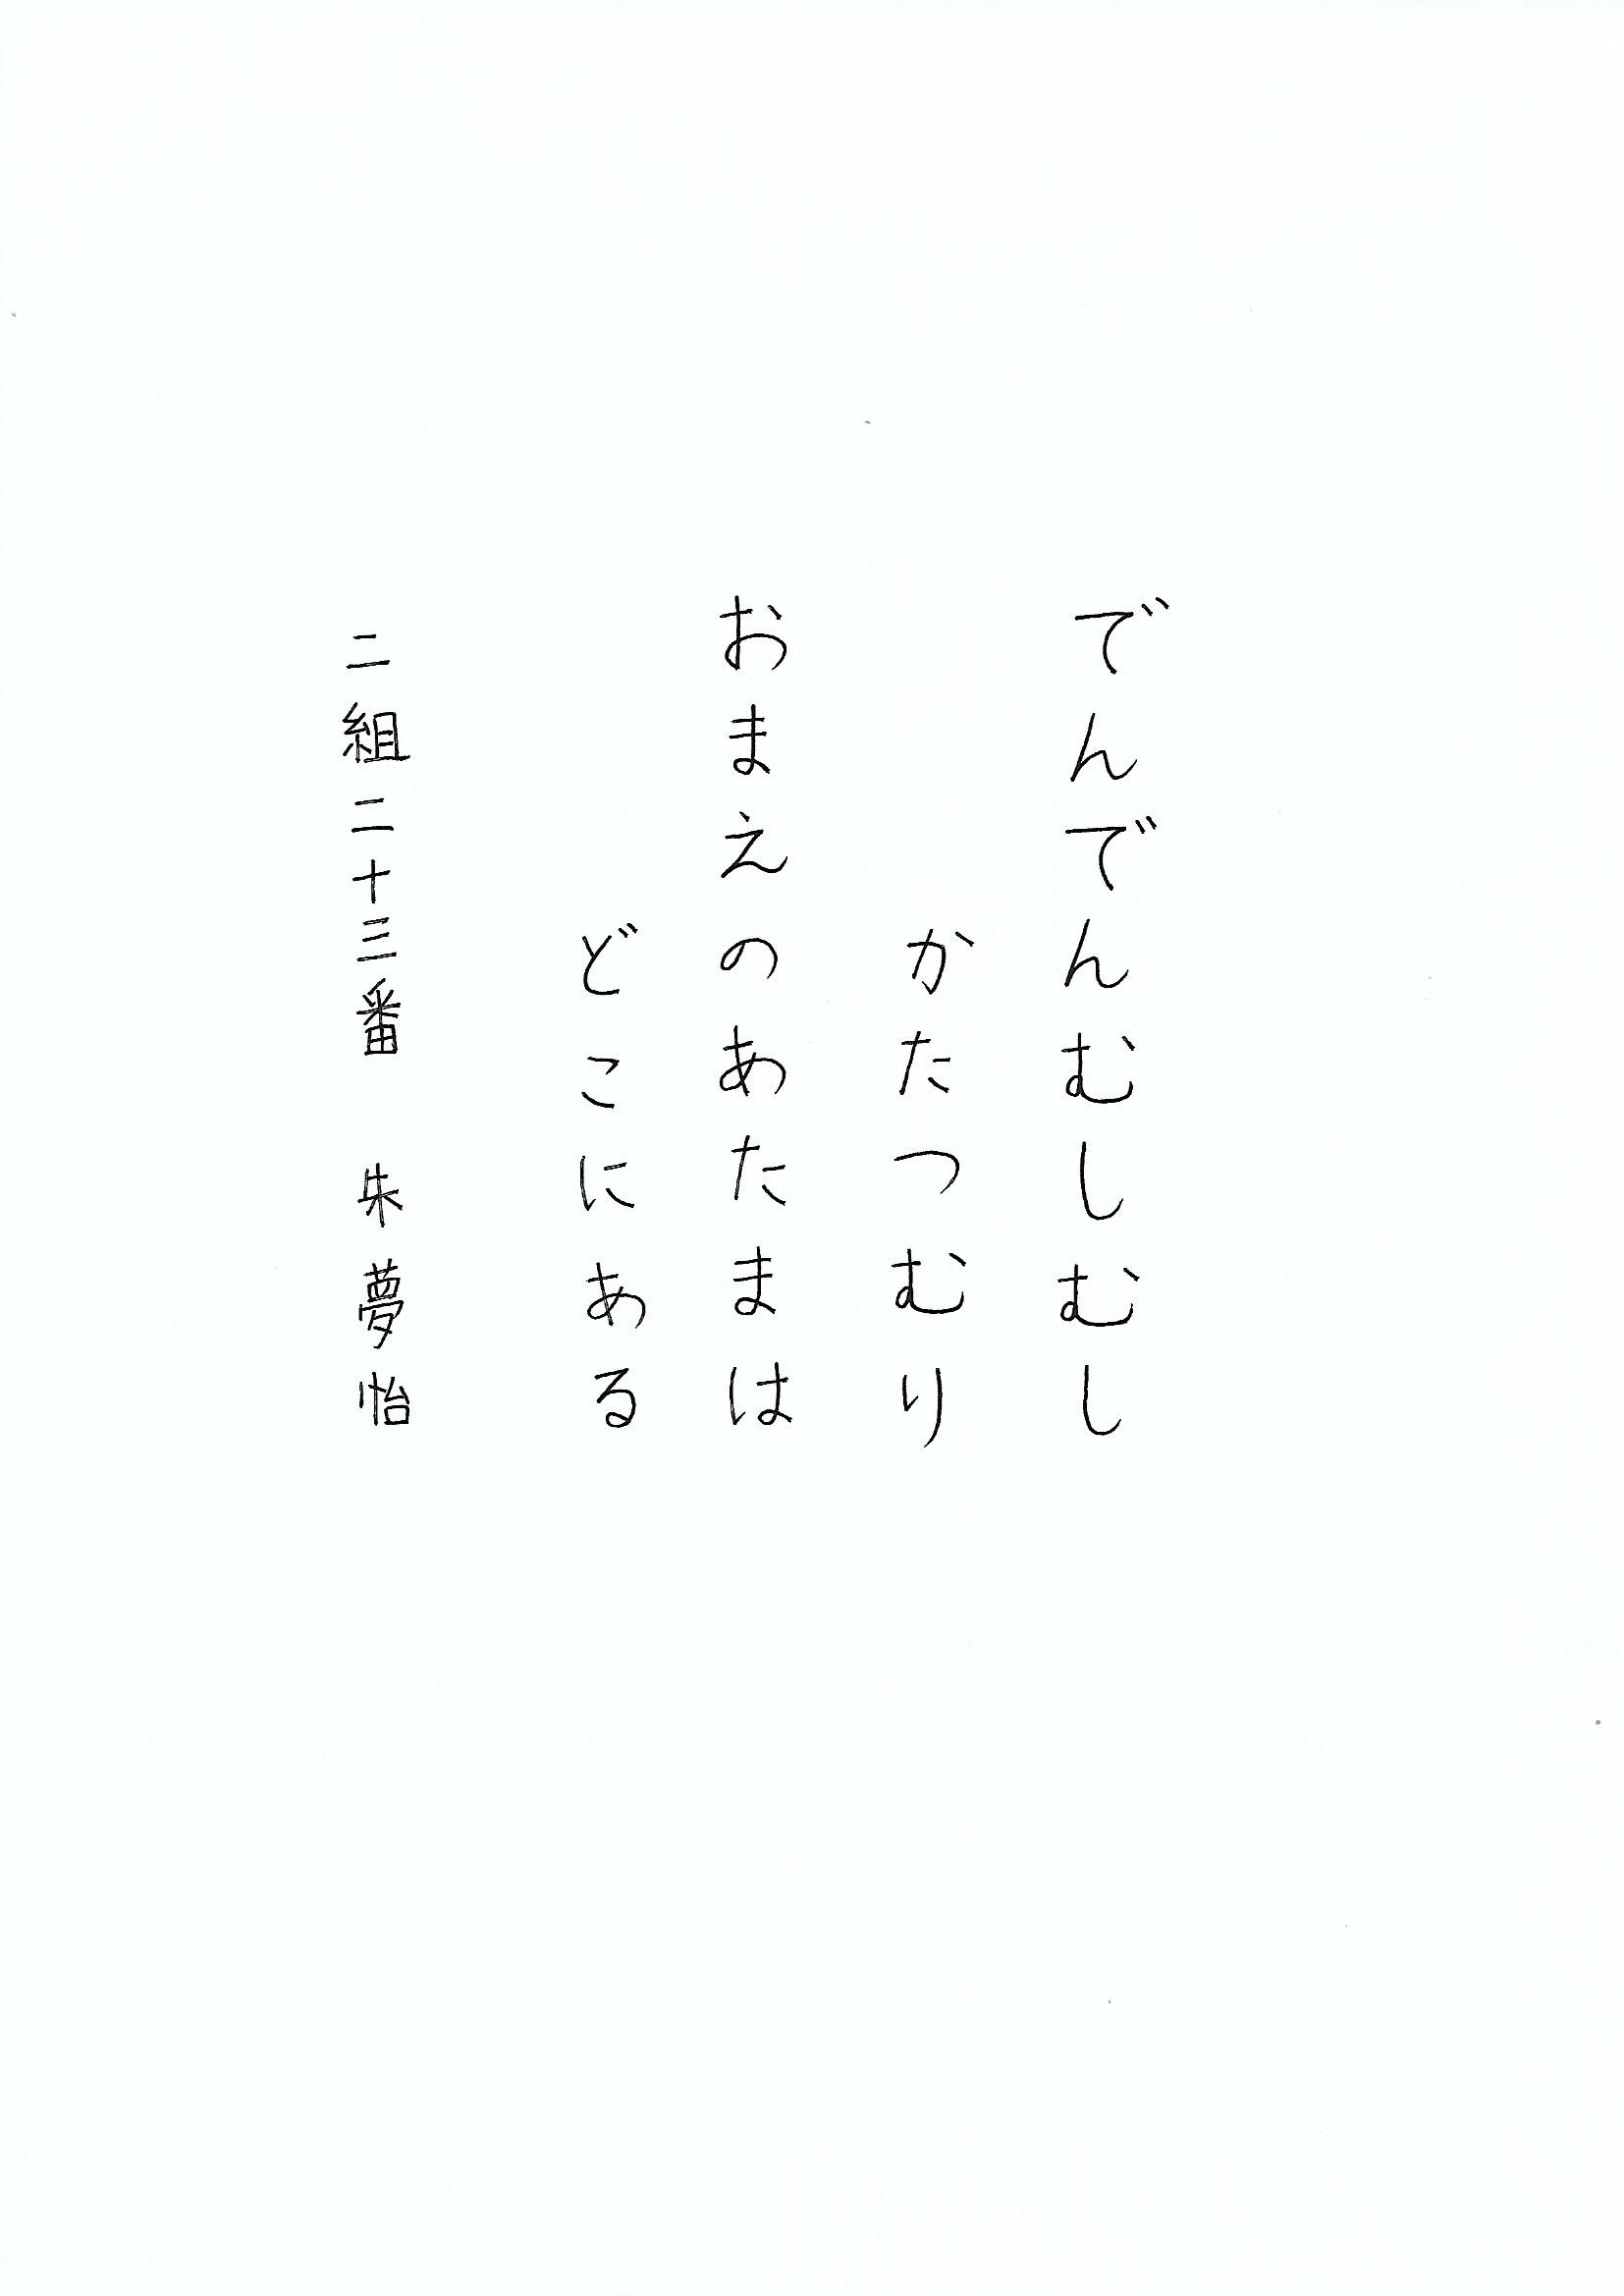 でんでんむしむし
かたつむり
おまえのあたまは
どこにある
二組二十三番　朱夢怡